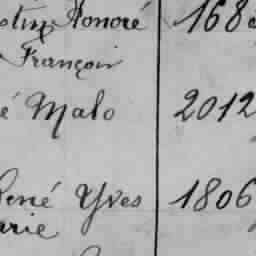 Honoré 168
François
é Malo 2012
René Yves 1806
arie